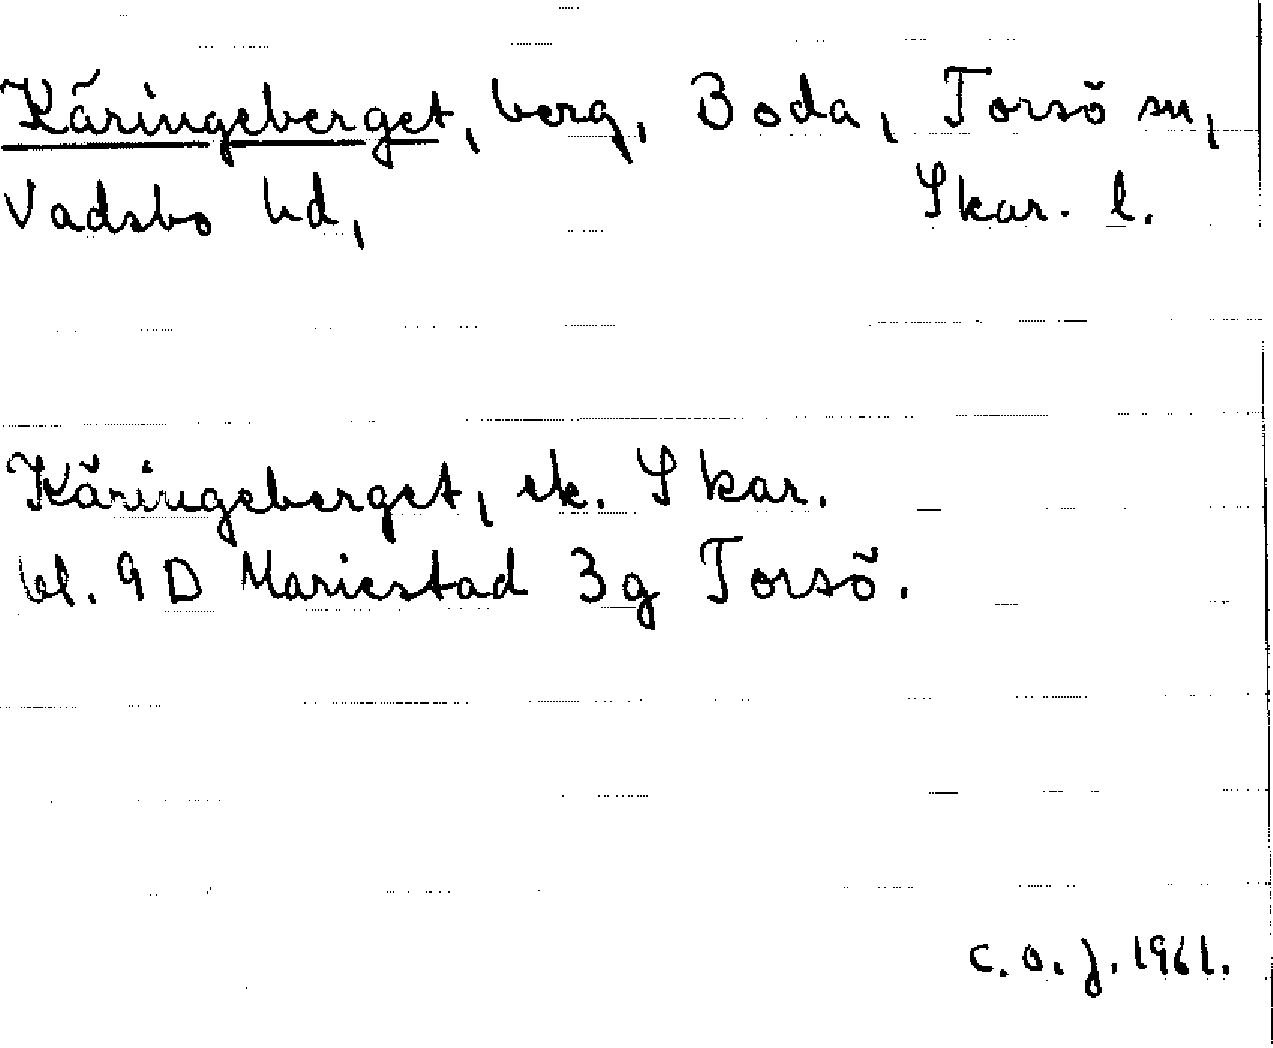 Käringeberget, berg, Boda, Torsö sn,
Vadsbo hd, Skar. l.
Käringeberget, ek. Skar.
bl. 9 D Mariestad 3g Torsö.
C. O. J. 1961.